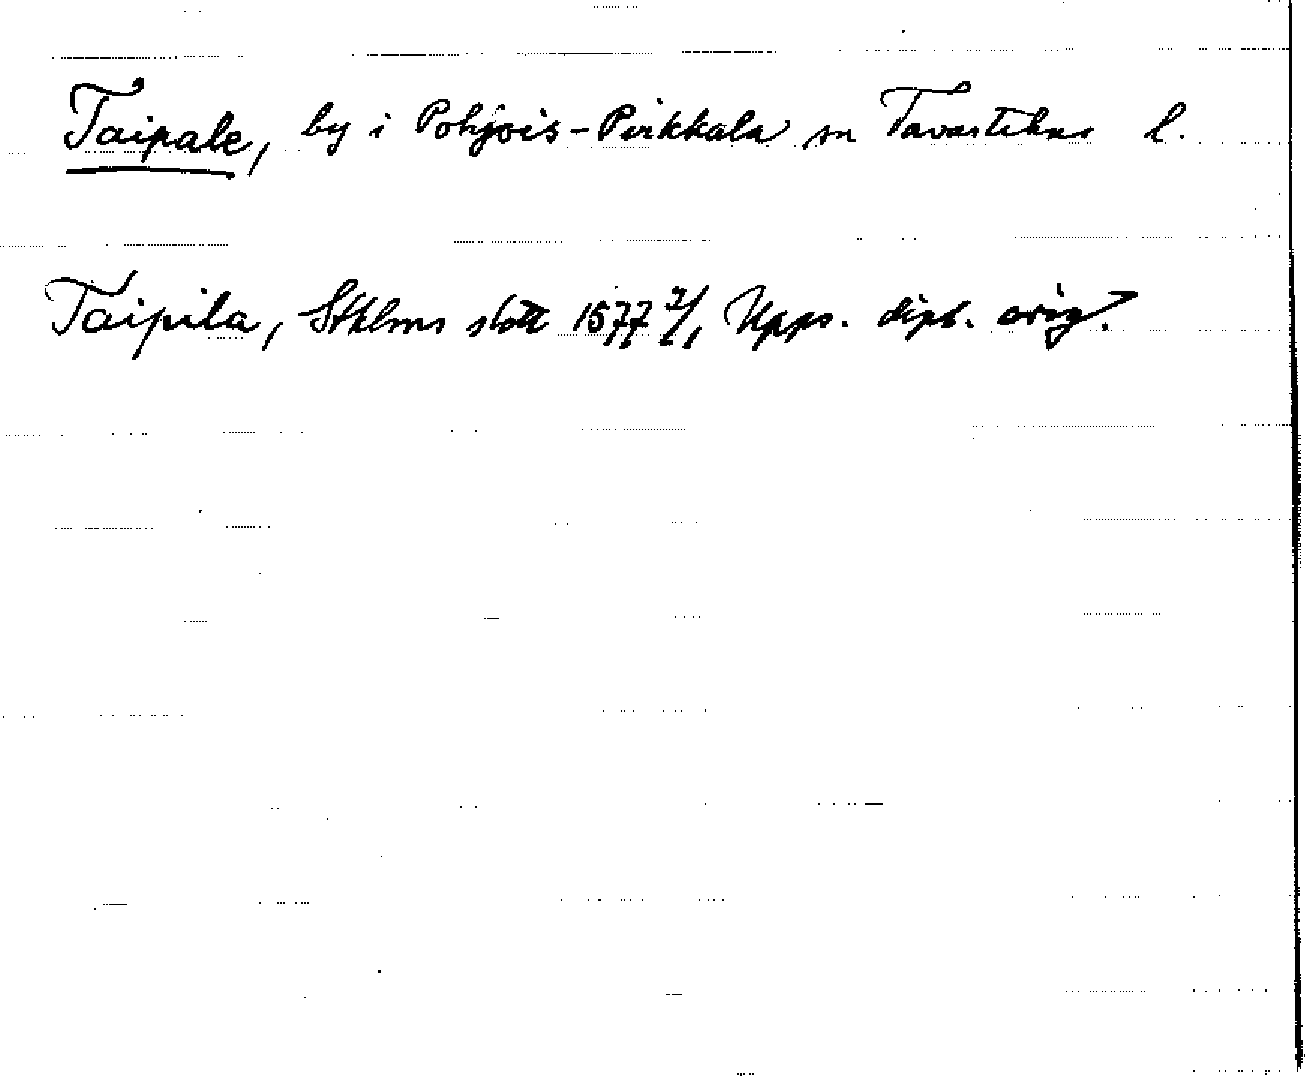 Taipale, by i Pohjois-Pirkkala sn Tavastehus l.
Taipila, Sthlms slott 1577 2/1 Upps. dipl. orig.